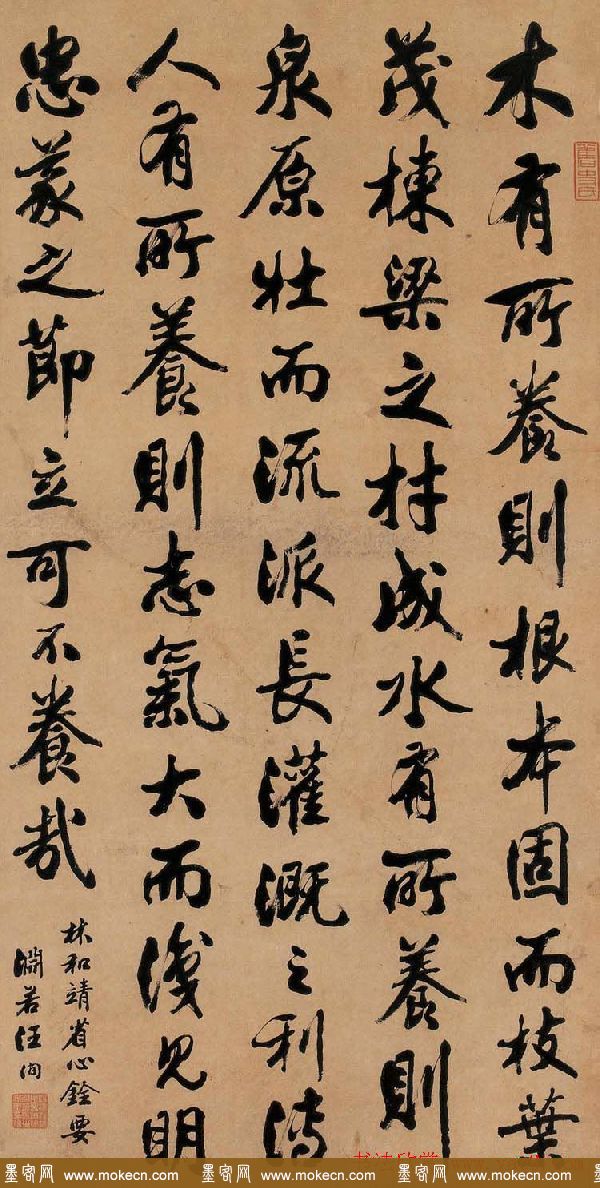 木有所養則根本固而枝葉
茂棟梁之材成水有所養則
泉原壯而流派長灌溉之利溥
人有所養則志氣大而識見明
忠義之節立可不養哉
林和靖省心銓要
淵若汪洵
舊史氏
书法欣赏
墨客网 www.mokecn.com 墨客网 www.mokecn.com 墨客网 www.mokecn.com